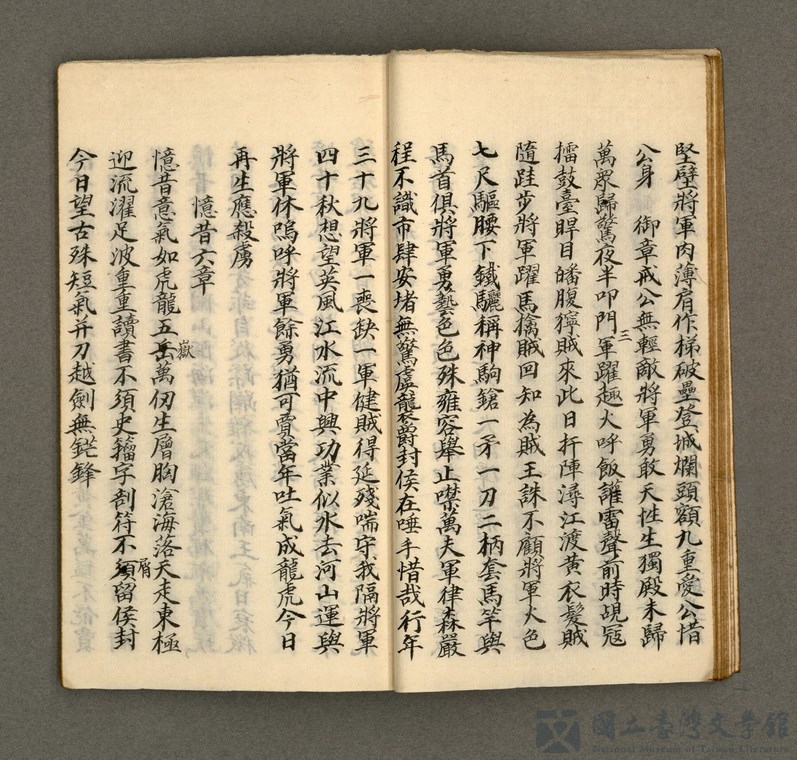 堅壁將軍肉薄肩作梯破壘登城爛頭額九重愛公惜
公身　御章戒公無輕敵將軍勇敢天性生獨殿未歸
萬眾歸驚夜半叩門三軍躍趣火呼飯讙雷聲前時覘寇
擂鼓臺睅目皤腹獰賊來此日扞陣潯江渡黃衣髮賊
隨跬步將軍躍馬擒賊回知為賊王誅不顧將軍火色
七尺驅腰下鐵驪稱神駒鎗一矛一刀二柄套馬竿與
馬首俱將軍勇藝色色殊雍容舉止噤萬夫軍律森嚴
程不識市肆安堵無驚虞龍登爵封侯在唾手惜哉行年
三十九將軍一喪缺一軍健賊得延殘喘守我隔將軍
四十秋想望英風江水流中興功業似水去河山運與
將軍休嗚呼將軍餘勇猶可賈當年吐氣成龍虎今日
再生應殺虜
憶昔六章
憶昔意氣如虎龍五岳嶽萬仞生層胸滄海落天走東極
迎流濯足波重重讀書不須史籀字剖符不須屑留侯封
今日望古殊短氣并刀越劍無鋩鋒
國立臺灣文學館
National Museum of Taiwan Literature